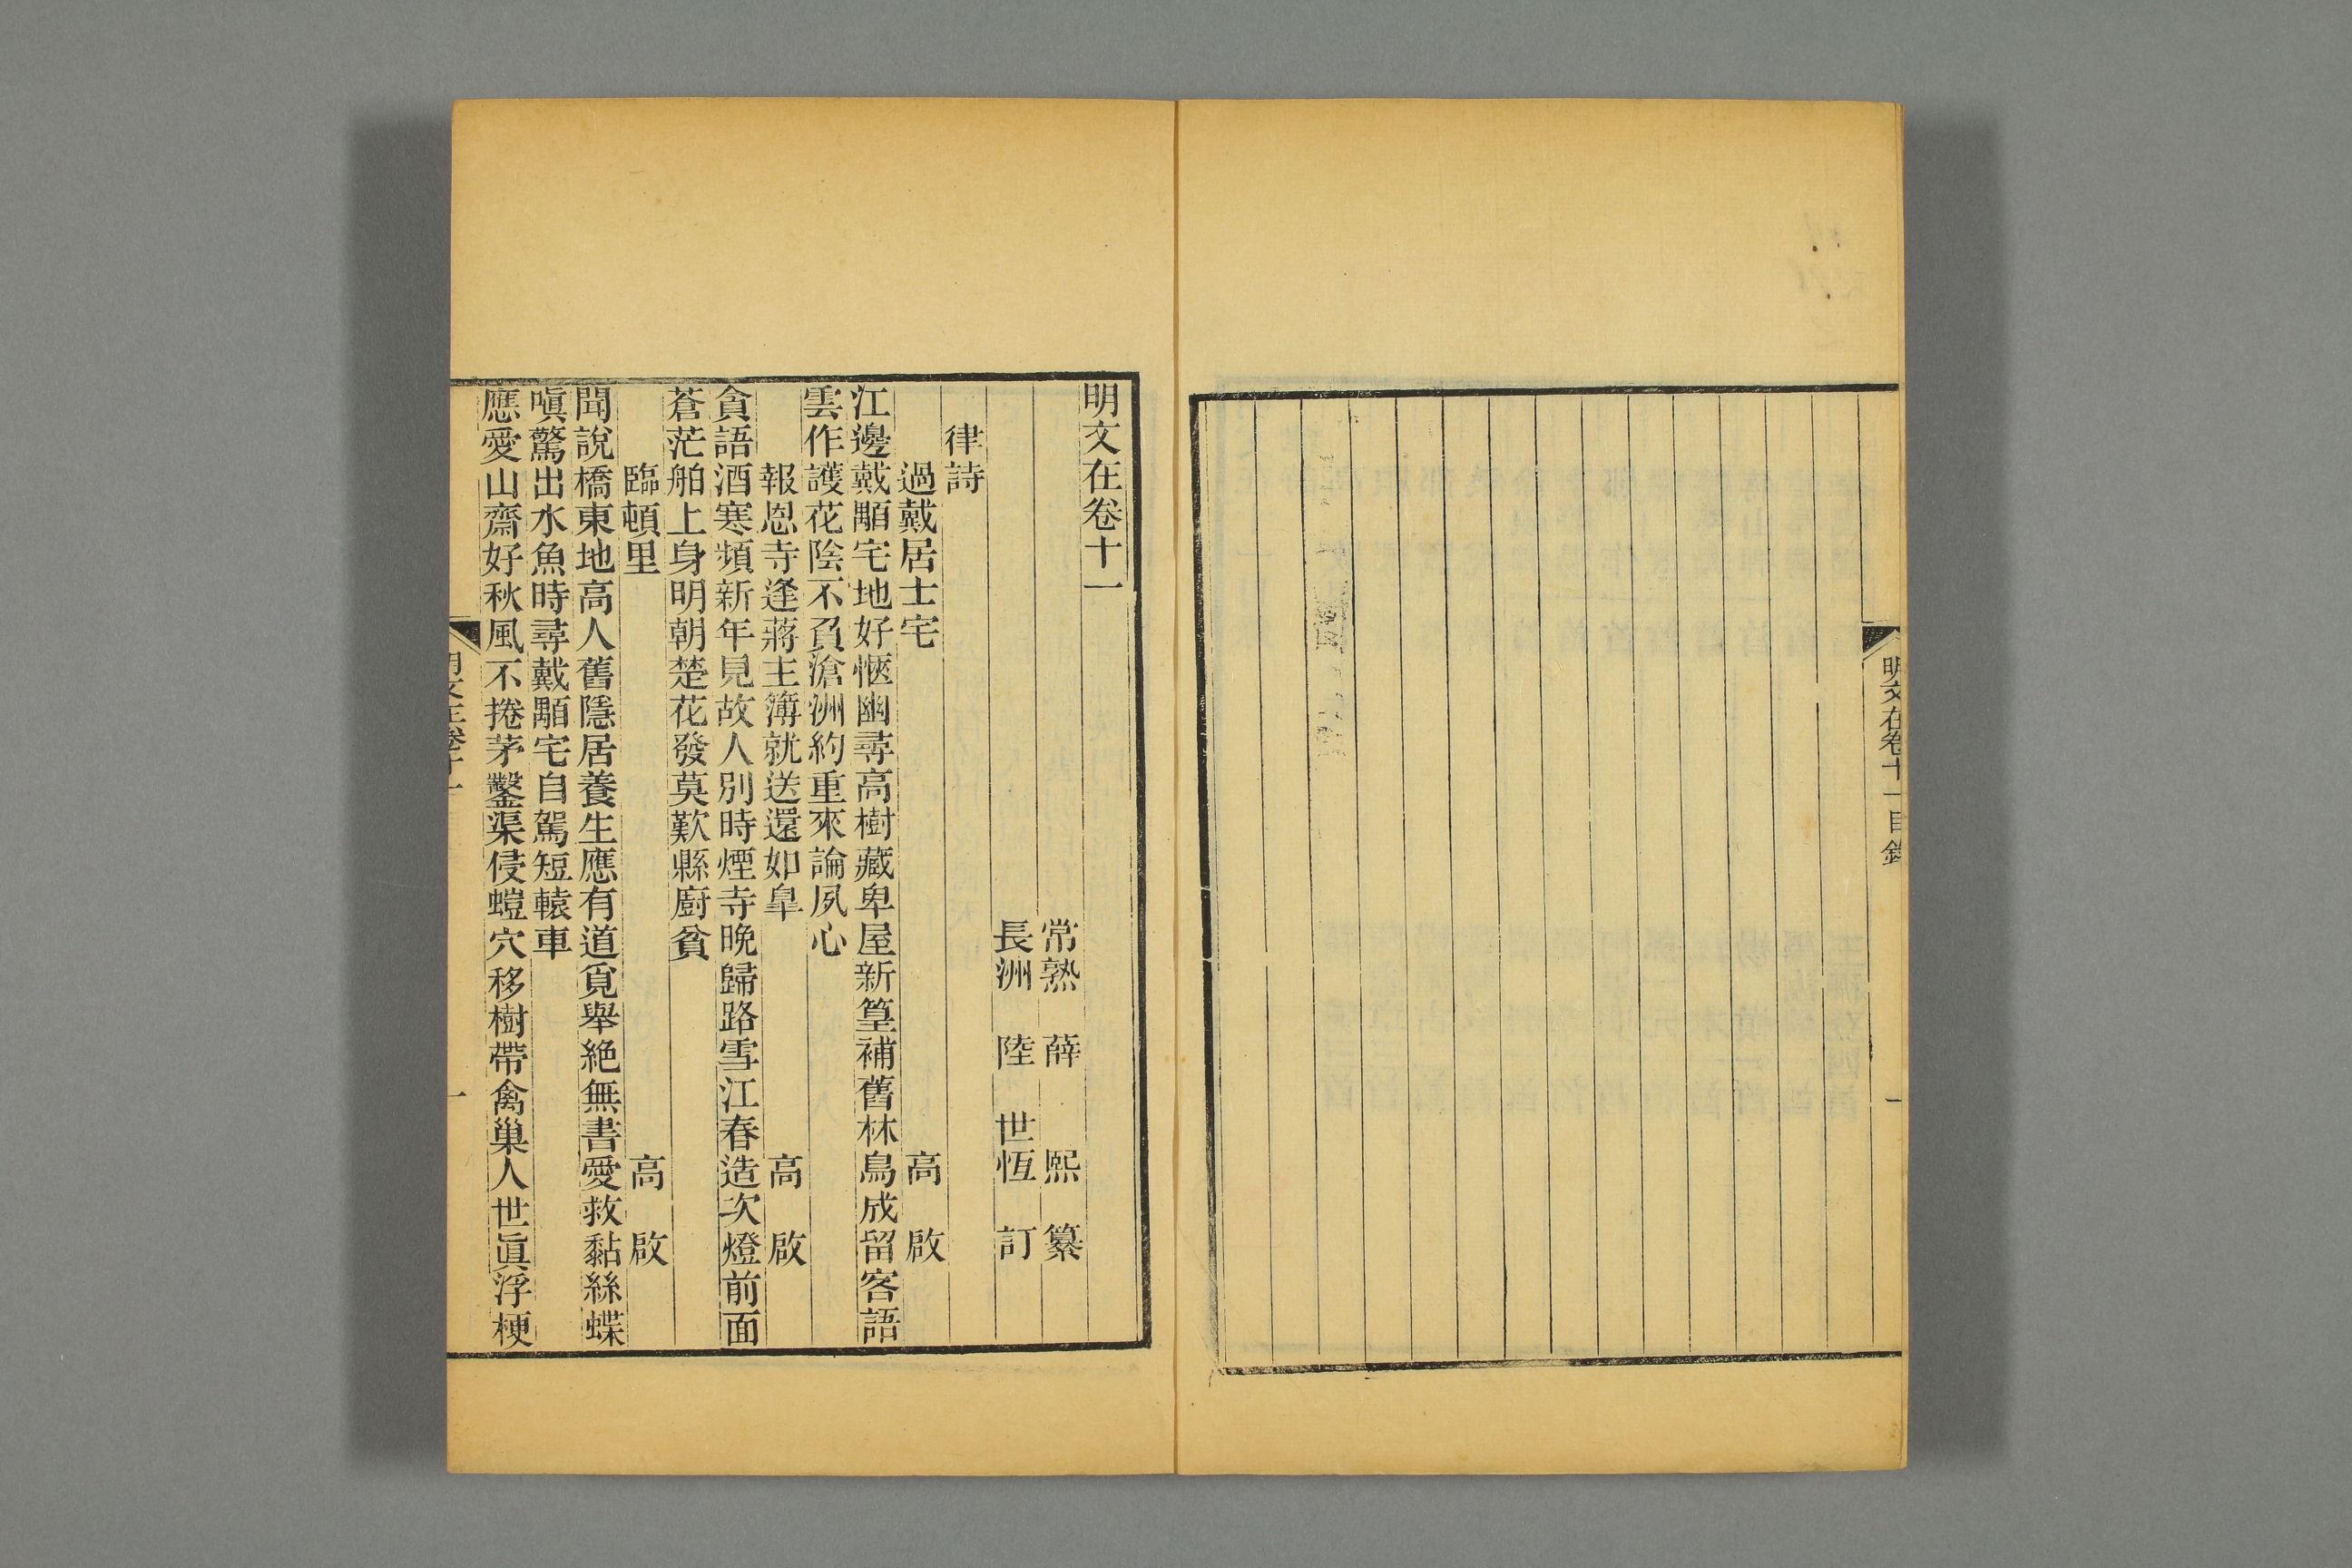 明文在卷十一目錄
一
明文在卷十一
常熟 薛 熙 纂
長洲 陸 世恆 訂
律詩
過戴居士宅 高 啟
江邊戴顒宅地好愜幽尋高樹藏卑屋新篁補舊林鳥成留客語
雲作護花陰不負滄洲約重來論夙心
報恩寺逢蔣主簿就送還如臯 高 啟
貪語酒寒頻新年見故人別時煙寺晚歸路雪江春造次燈前面
蒼茫舶上身明朝楚花發莫歎縣廚貧
臨頓里 高 啟
聞說橋東地高人舊隱居養生應有道覓舉絕無書愛救黏絲蝶
嗔驚出水魚時尋戴顒宅自駕短轅車
應愛山齋好秋風不捲茅鑿渠侵螘穴移樹帶禽巢人世眞浮梗
明文在卷十一
一